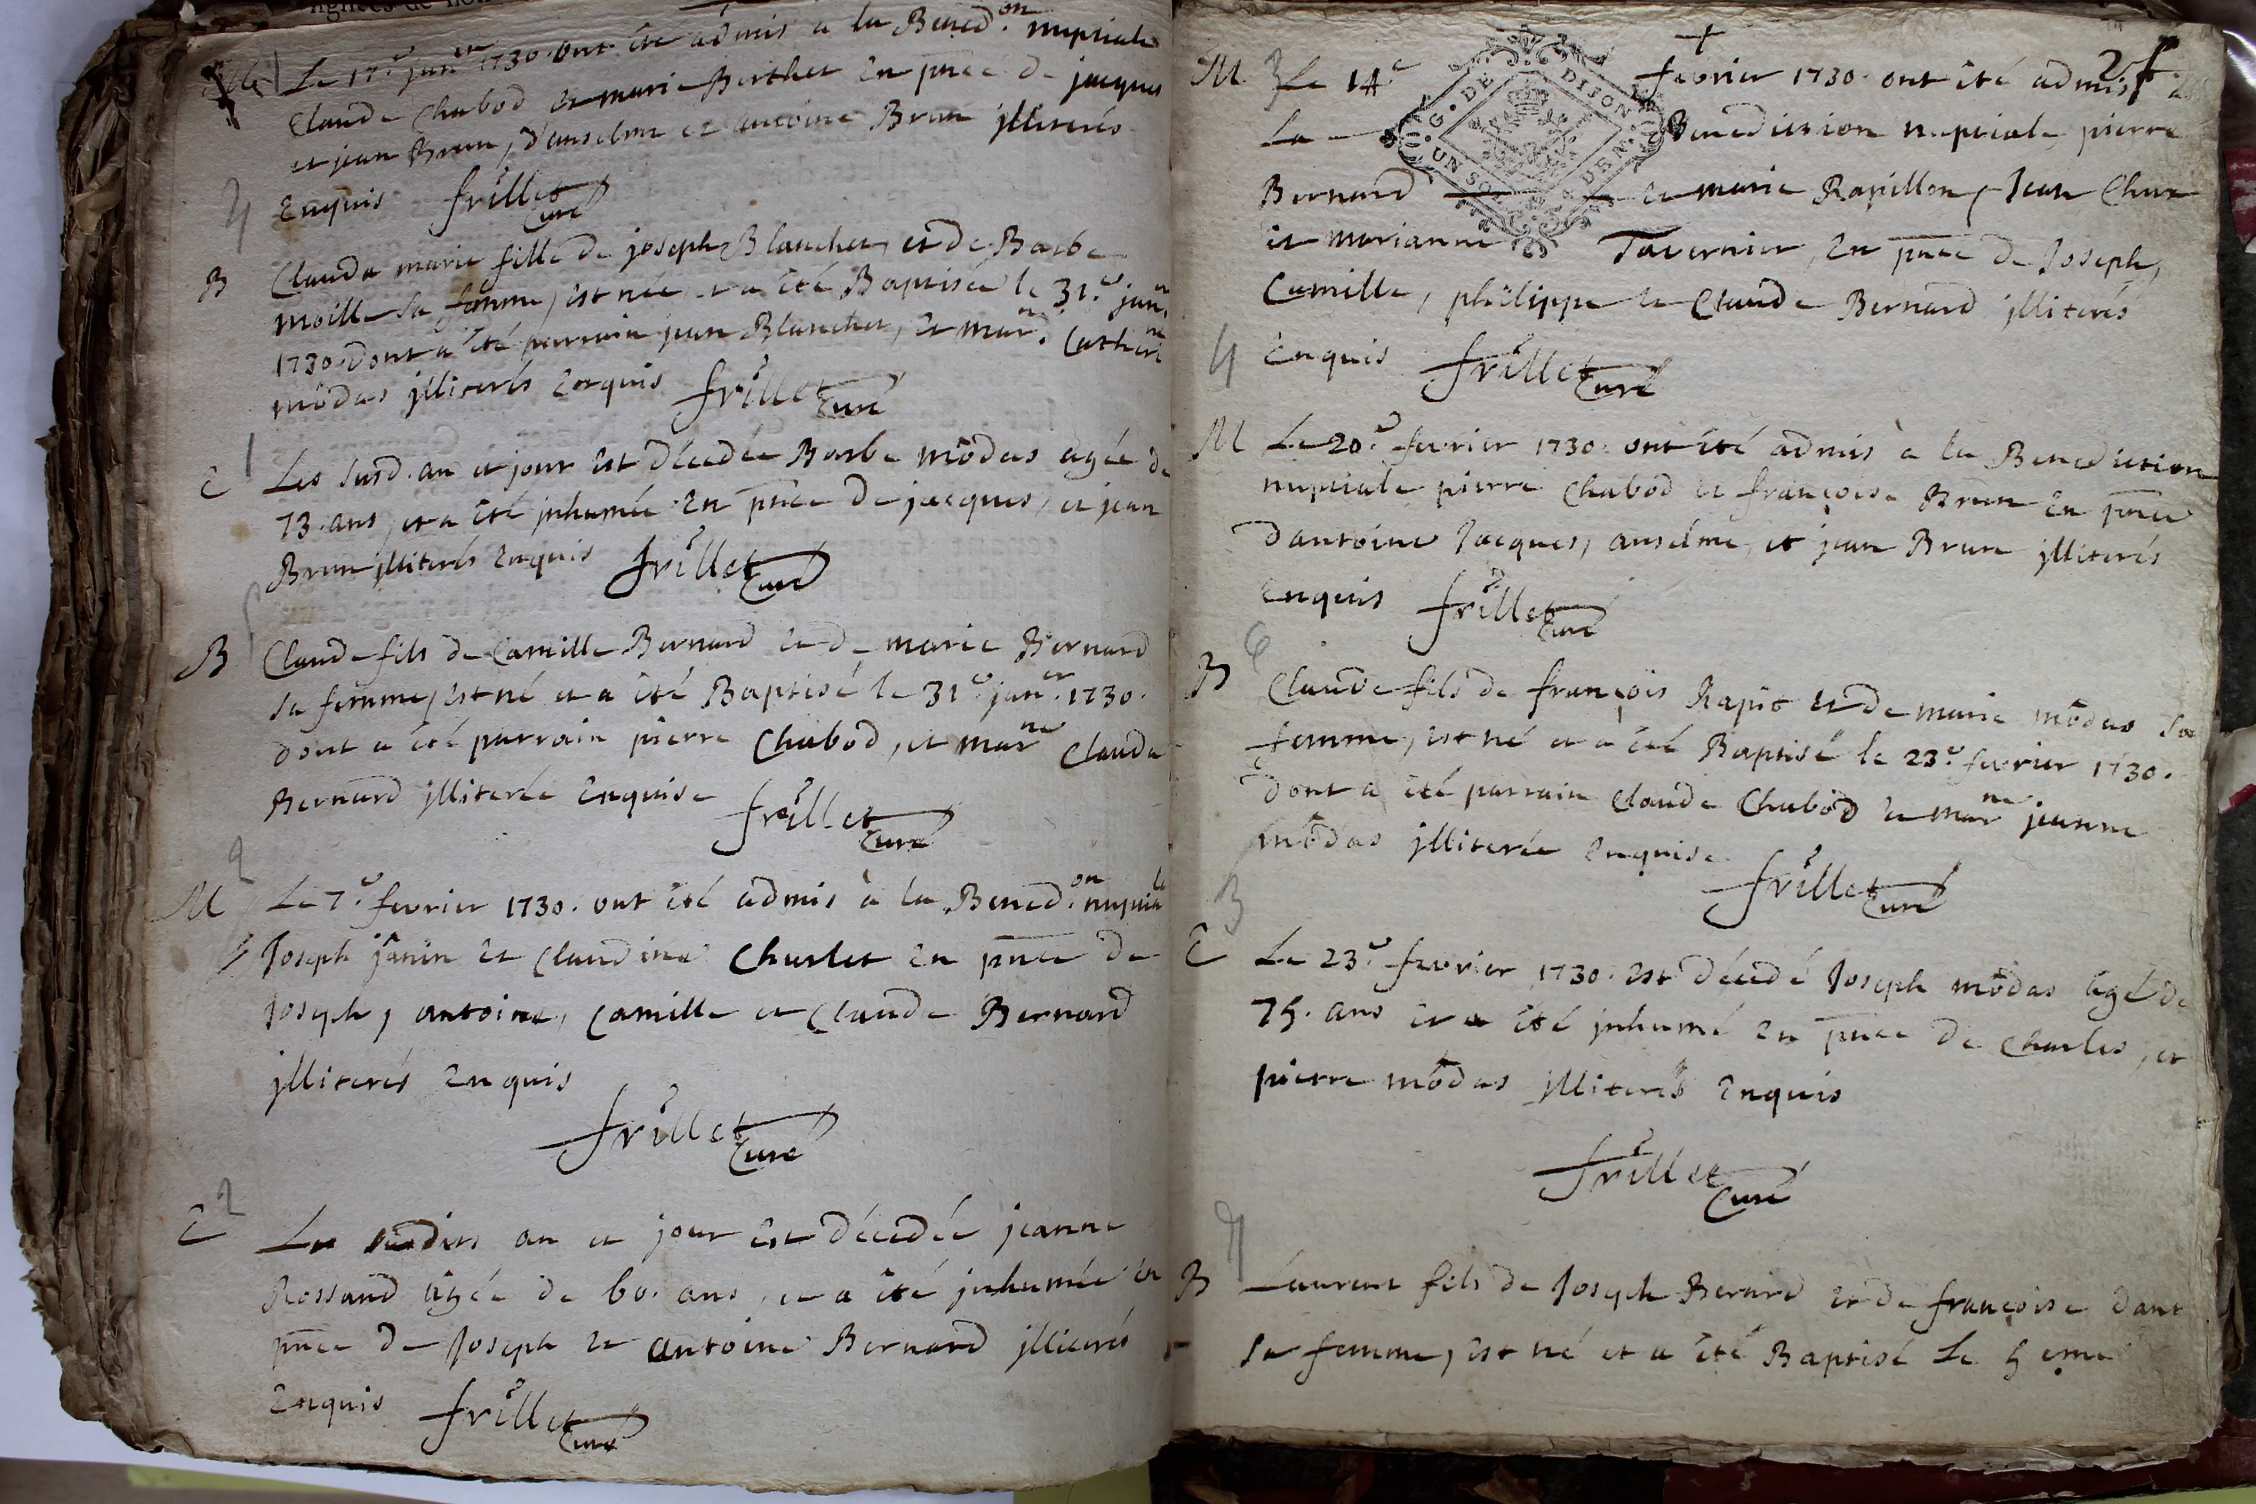 Le 17.e jan.er 1730. ont été admis à la Bened.on nuptiale
Claude Chabod et marie Berthet En pnce de jacques
et jean Brun, d'anselme et antoine Brun jlliterés
Enquis frillet Curé
B Clauda marie fille de joseph Blanchet, et de Barbe
moille sa feme, est née et a été Baptisée le 31.e jan.er
1730. dont a été parrain jean Blanchet, et mar.ne Catherine
môdas jlliterés Enquis frillet Curé
E Les susd. an et jour est décedée Barbe môdas agée de
73. ans, et a été jnhumée En pnce de jacques, et jean
Brun jlliterés Enquis frillet Curé
B Claude fils de Camille Bernard et de marie Bernard
sa femme, est né et a été Baptisé le 31.e jan.er 1730.
dont a été parrain pierre Chabod, et mar.ne Clauda
Bernard jlliterée Enquise frillet Curé
M Le 7.e fevrier 1730. ont été admis à la Bened.on nuptiale
Joseph jânin et Claudine Charlet En pnce de
Joseph, antoine, Camille et Claude Bernard
jlliterés Enquis
frillet Curé
E Les susdits an et jour est décedée jeanne
Rossand âgée de 60. ans, et a été jnhumée en
pnce de Joseph et antoine Bernard jlliterés
Enquis frillet Curé
M Le 14.e fevrier 1730. ont été admis à
La Benediction nuptiale, pierre
Bernard et marie Rapillon, Jean
et marianne Tavernier, En pnce de Joseph,
Camille, philippe et Claude Bernard jlliterés
Enquis frillet Curé
M Le 20.e fevrier 1730. ont été admis à la Benediction
nuptiale pierre Chabod et françoise Brun En pnce
d'antoine Jacques, anselme, et jean Brun jlliterés
Enquis frillet Curé
B Claude fils de françois Rapit et de marie môdas Sa
femme, est né et a été Baptisé le 23.e fevrier 1730.
dont a été parrain Claude Chabod et mar.ne jeanne
môdas jlliterée Enquise
frillet Curé
E Le 23.e fevrier 1730. est décedé Joseph môdas âgé de
75. ans et a été jnhumé En pnce de Charles, et
pierre môdas jlliterés Enquis
frillet Curé
B Laurent fils de Joseph Berard et de françoise dant
sa femme, est né et a été Baptisé Le 5 eme
G. DE DIJON
UN SOL